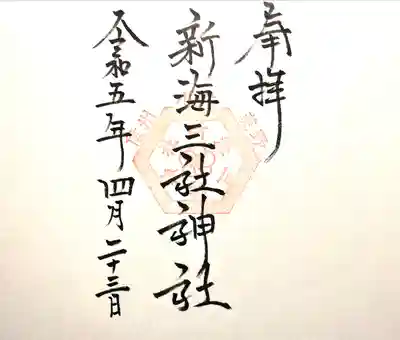 奉拝
新海三社神社
令和五年 四月二十三日